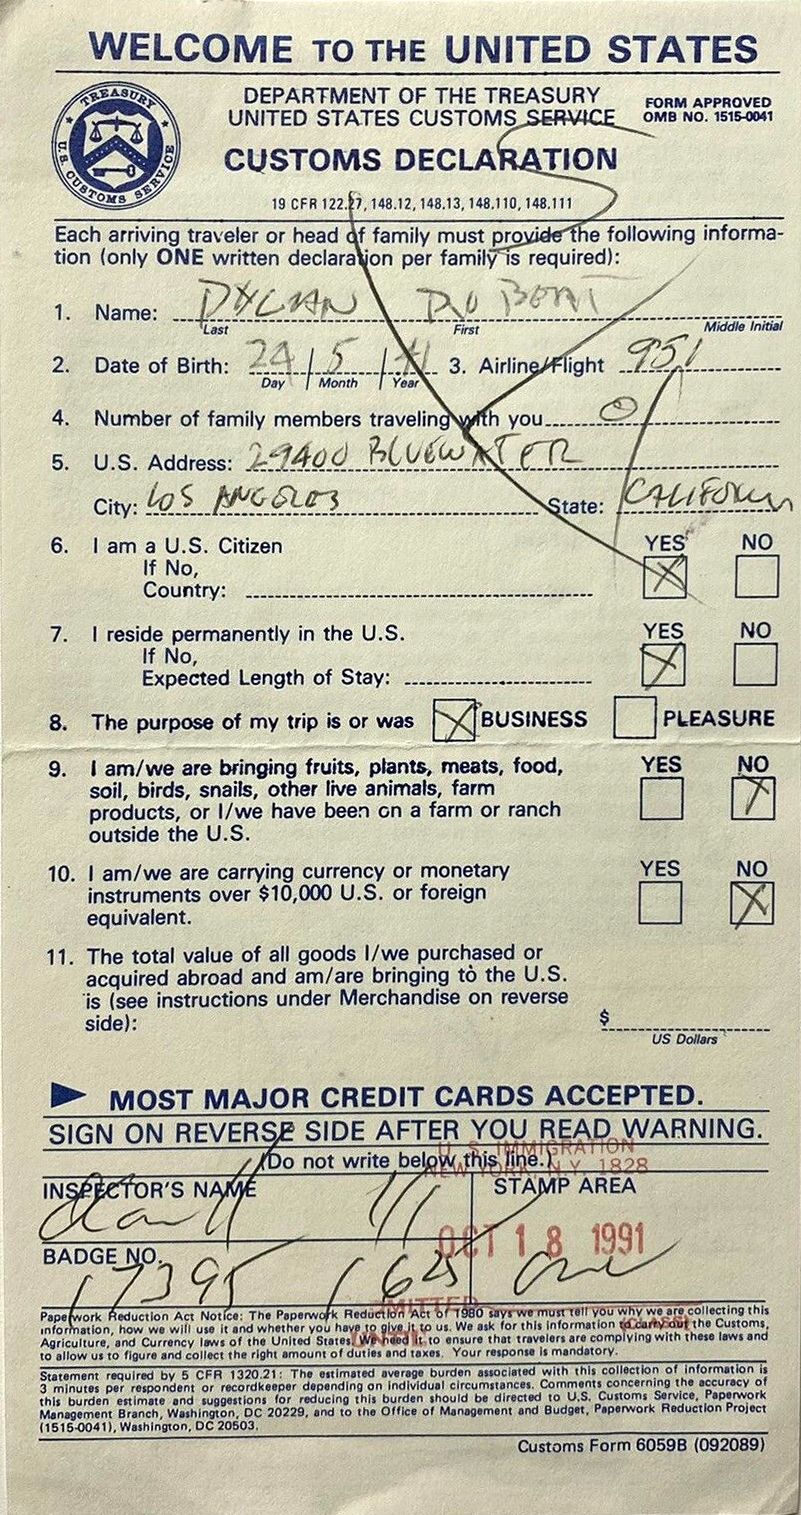 WELCOME TO THE UNITED STATES
TREASURY
U.S. CUSTOMS SERVICE
DEPARTMENT OF THE TREASURY
UNITED STATES CUSTOMS SERVICE
FORM APPROVED
OMB NO. 1515-0041
CUSTOMS DECLARATION
19 CFR 122.27, 148.12, 148.13, 148.110, 148.111
Each arriving traveler or head of family must provide the following informa-
tion (only ONE written declaration per family is required):
1. Name: DYLAN
Last First Middle Initial
2. Date of Birth: 24 5 41 3. Airline/Flight 951
Day Month Year
4. Number of family members traveling with you 0
5. U.S. Address: 29400 BLUEWATER
City: LOS ANGELES State: CALIFORNIA
6. I am a U.S. Citizen YES NO
If No,
Country:
7. I reside permanently in the U.S. YES NO
If No,
Expected Length of Stay:
8. The purpose of my trip is or was BUSINESS PLEASURE
9. I am/we are bringing fruits, plants, meats, food, YES NO
soil, birds, snails, other live animals, farm
products, or I/we have been on a farm or ranch
outside the U.S.
10. I am/we are carrying currency or monetary YES NO
instruments over $10,000 U.S. or foreign
equivalent.
11. The total value of all goods I/we purchased or
acquired abroad and am/are bringing to the U.S.
is (see instructions under Merchandise on reverse
side): $
US Dollars
MOST MAJOR CREDIT CARDS ACCEPTED.
SIGN ON REVERSE SIDE AFTER YOU READ WARNING.
(Do not write below this line.)
U.S. IMMIGRATION
NEW YORK, N.Y. 1828
INSPECTOR'S NAME STAMP AREA
OCT 18 1991
BADGE NO.
17395 1625
ADMITTED
CLASS
UNTIL
Paperwork Reduction Act Notice: The Paperwork Reduction Act of 1980 says we must tell you why we are collecting this
information, how we will use it and whether you have to give it to us. We ask for this information to carry out the Customs,
Agriculture, and Currency laws of the United States. We need it to ensure that travelers are complying with these laws and
to allow us to figure and collect the right amount of duties and taxes. Your response is mandatory.
Statement required by 5 CFR 1320.21: The estimated average burden associated with this collection of information is
3 minutes per respondent or recordkeeper depending on individual circumstances. Comments concerning the accuracy of
this burden estimate and suggestions for reducing this burden should be directed to U.S. Customs Service, Paperwork
Management Branch, Washington, DC 20229, and to the Office of Management and Budget, Paperwork Reduction Project
(1515-0041), Washington, DC 20503.
Customs Form 6059B (092089)